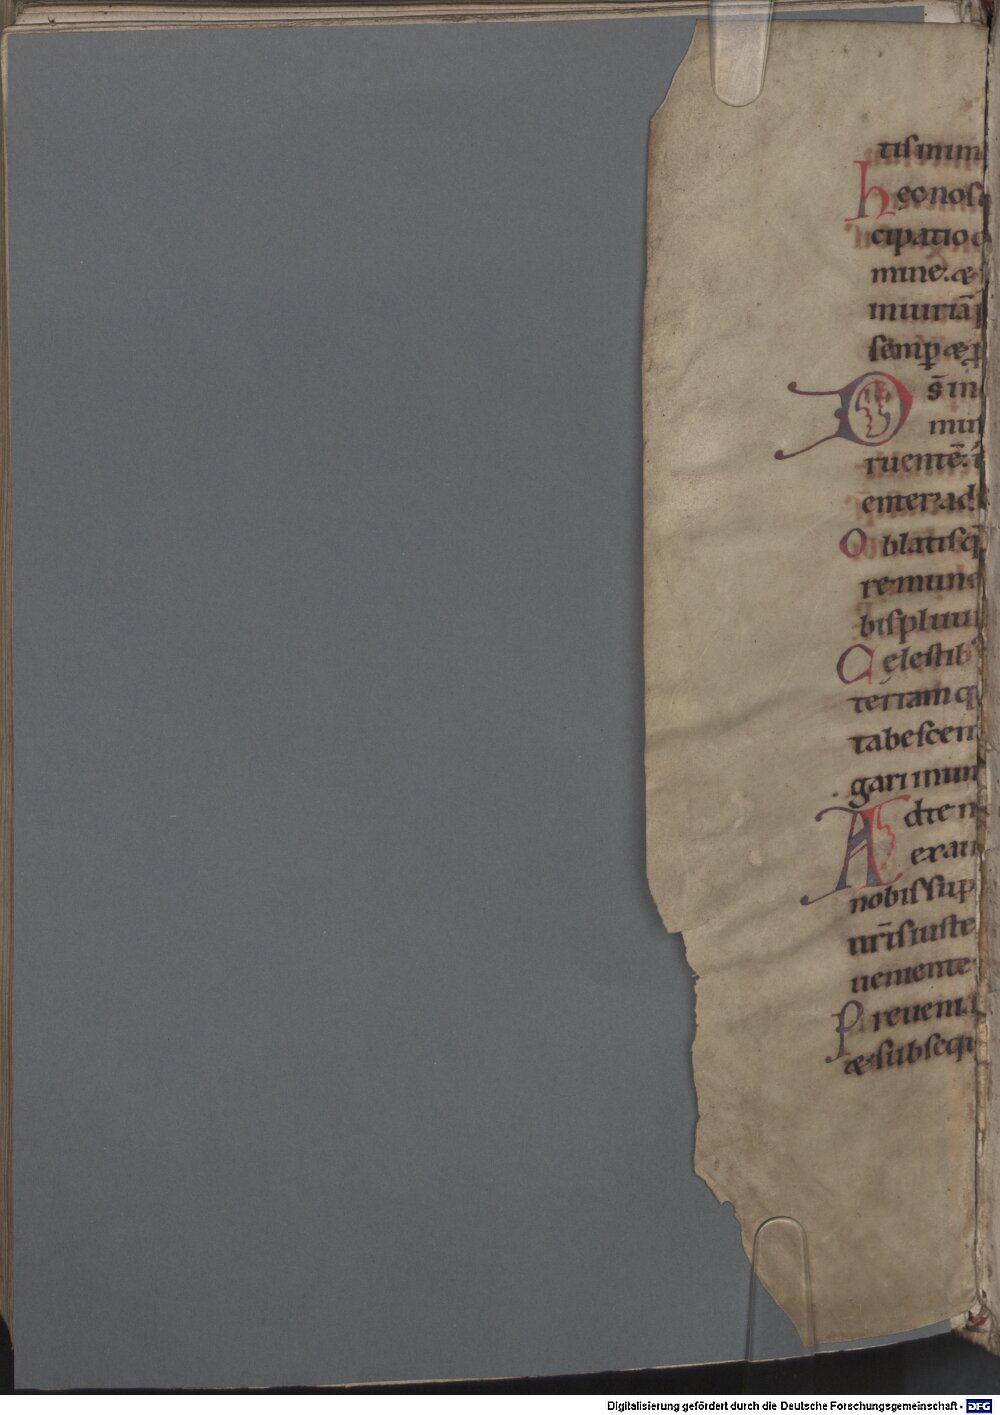 tisimun
hęonosq
cipatio
mine. æ
muuriā
semꝑ æꝑ
Ds̄ in
mui
ruentē. i
enter ad
Oblatisq̄
remune
bisplιuu
Cęlestib
terram q
tabescen
gari mun
Ad te n
exau
nobis sup
nr̄is iuste
uemente
Preuenia
æ subsequ
Digitalisierung gefördert durch die Deutsche Forschungsgemeinschaft - DFG